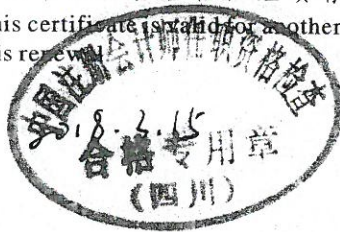 his certificate is valid for another
is renewal
中国注册会计师任职资格检查
8.3.15
合格专用章
(四川)